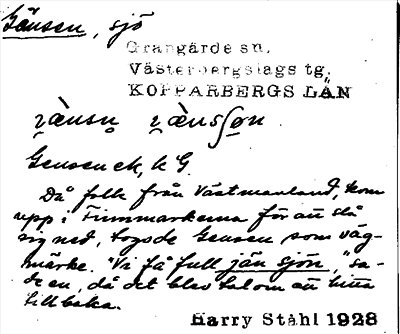 Gänsen, sjö
Grangärde sn.
Västerbergslags tg.
KOPPARBERGS LÄN
Gensen ek, k G.
Då folk från Västmanland, kom
upp i Finnmarkerna för att slå
sig ned, togo de Gensen som väg-
märke. "Vi få full jän sjön," sa-
de en, då det blev tal om att hitta
tillbaka.
Harry Ståhl 1928